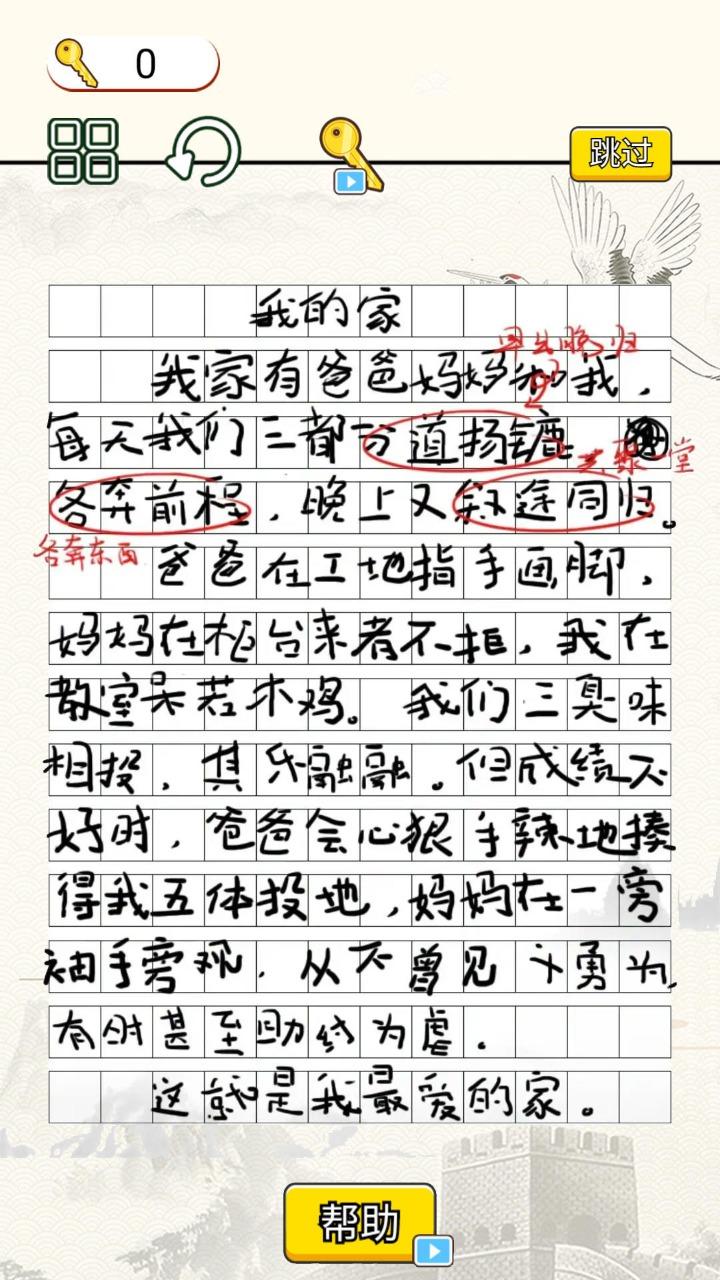 0
跳过
我的家
早出晚归
我家有爸爸妈妈和我，
每天我们三都分道扬镳
共聚一堂
各奔前程，晚上又殊途同归。
各奔东西
爸爸在工地指手画脚，
妈妈在柜台来者不拒，我在
教室呆若木鸡。我们三臭味
相投，其乐融融。但成绩不
好时，爸爸会心狠手辣地揍
得我五体投地，妈妈在一旁
袖手旁观，从不曾见义勇为，
有时甚至助纣为虐。
这就是我最爱的家。
帮助